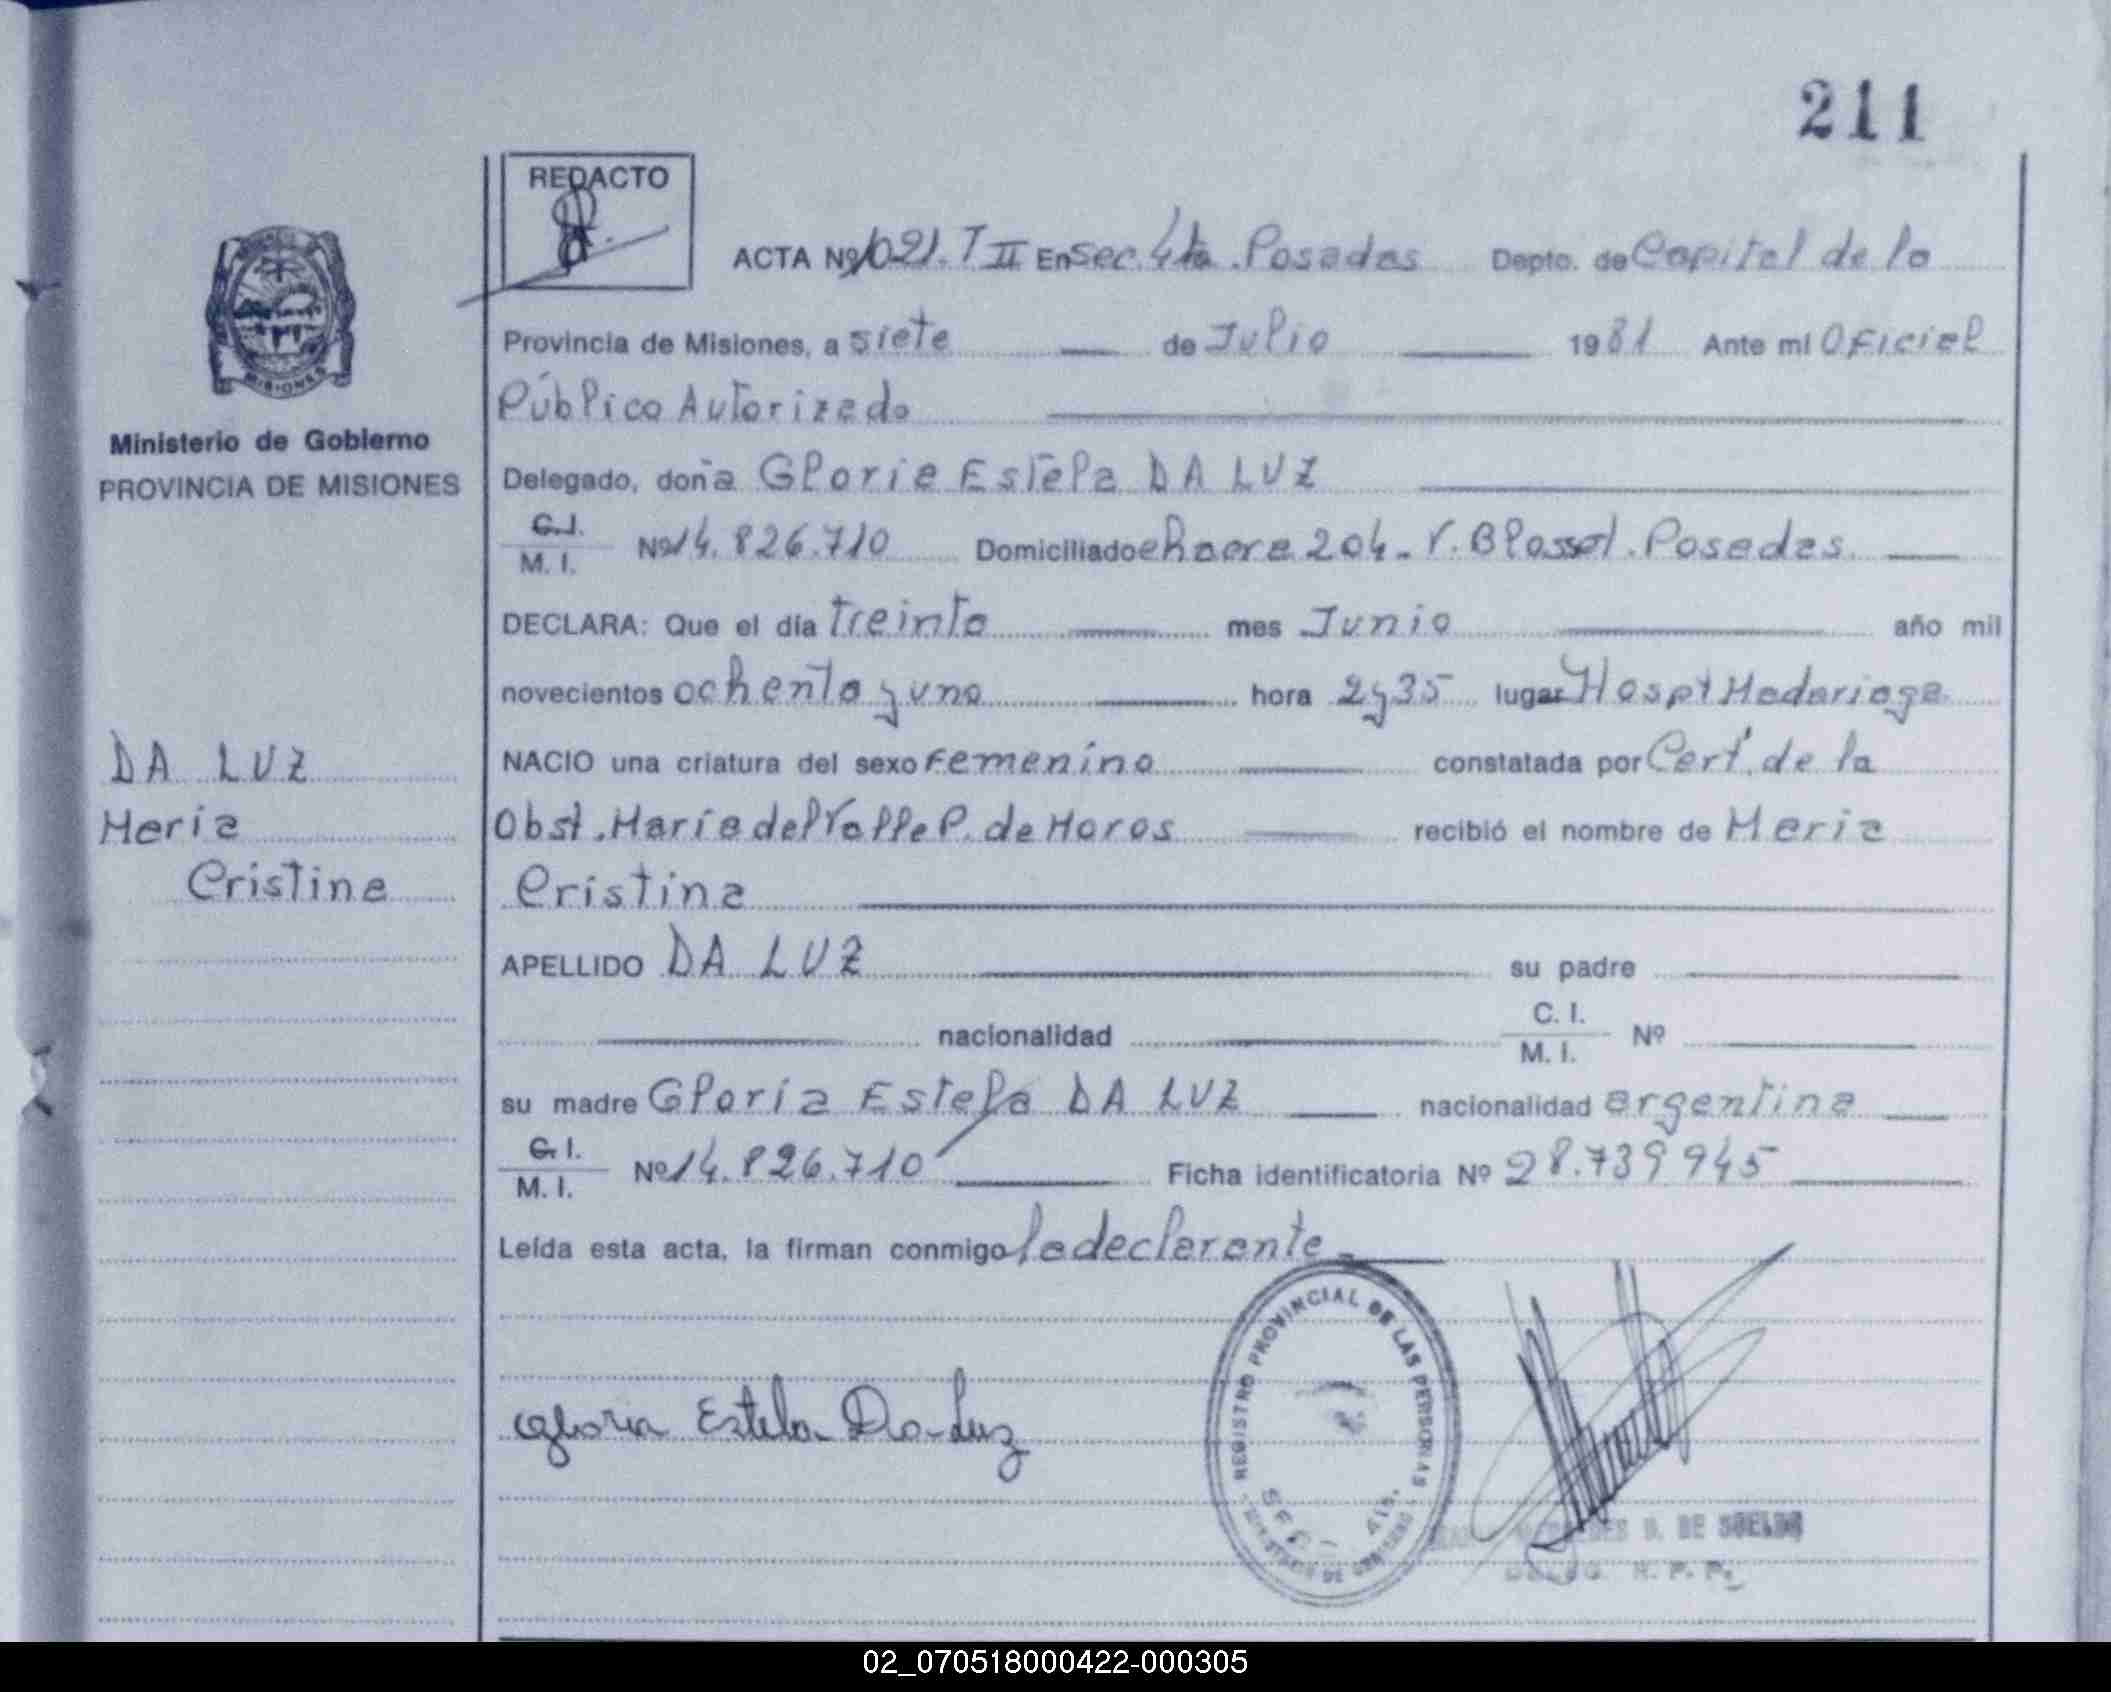 211
REDACTO
ACTA Nº 1021. T II En Sec. 4ta. Posadas Depto. de Capital de la
Provincia de Misiones, a siete de Julio 1981 Ante mi Oficial
Público Autorizado
Ministerio de Gobierno
PROVINCIA DE MISIONES
Delegado, doña Gloria Estela DA LUZ
C.I. M. I. Nº 14.826.710 Domiciliado chacra 204. V. Blosset. Posadas.
DECLARA: Que el día treinta mes Junio año mil
novecientos ochenta y uno hora 2y35 lugar Hospt Madariaga
DA LUZ
NACIO una criatura del sexo Femenino constatada por Cert. de la
Maria
Obst. María del Valle P. de Moros recibió el nombre de Maria
Cristina
Cristina
APELLIDO DA LUZ su padre
nacionalidad C. I. M. I. Nº
su madre Gloria Estela DA LUZ nacionalidad argentina
C. I. M. I. Nº 14.826.710 Ficha identificatoria Nº 28.739945
Leída esta acta, la firman conmigo la declarante
Gloria Estela Da Luz
REGISTRO PROVINCIAL DE LAS PERSONAS
MINISTERIO DE GOBIERNO
SECC. 4ta.
D. DE SUELDO
DELEG. R. P. P.
MISIONES
02_070518000422-000305